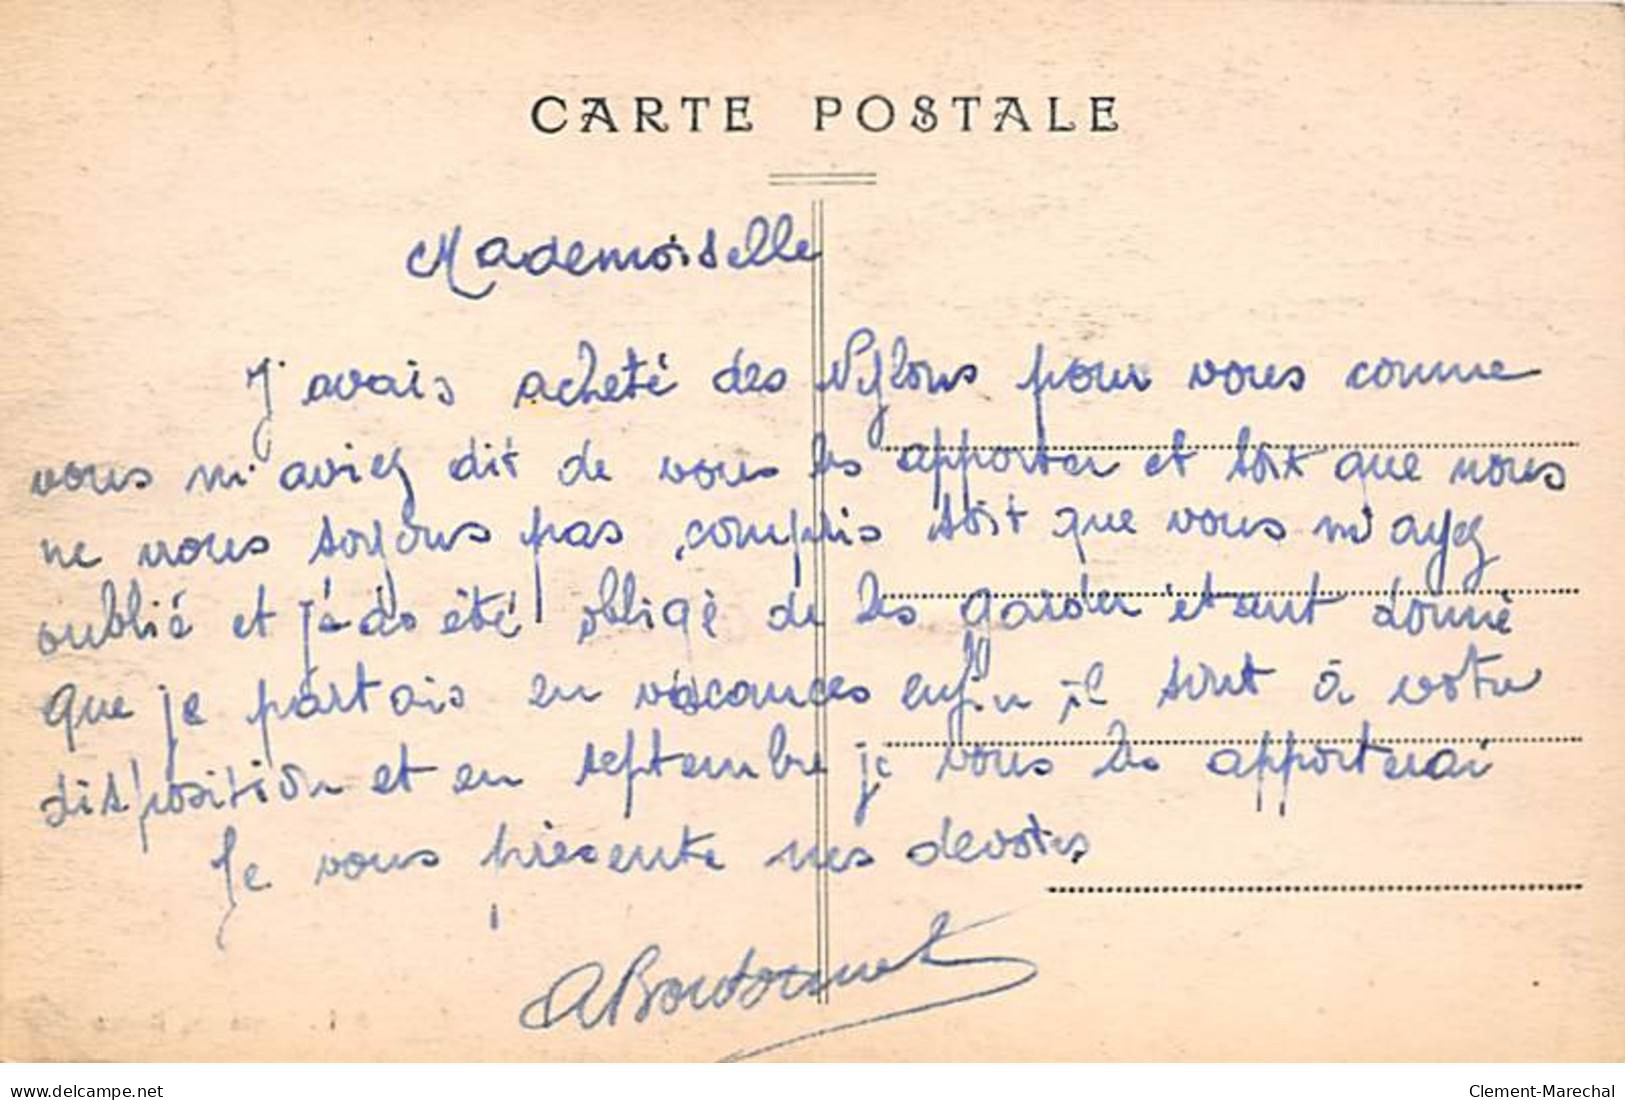 CARTE POSTALE
Mademoiselle
J'avais acheté des Nylons pour vous comme
vous m'aviez dit de vous les apporter et soit que nous
ne nous soyons pas compris soit que vous m'ayez
oublié et j'ai été obligé de les garder étant donné
que je partais en vacances enfin il sont à votre
disposition et en septembre je vous les apporterai
Je vous présente mes devoirs
delcampe.net
Clement-Marechal